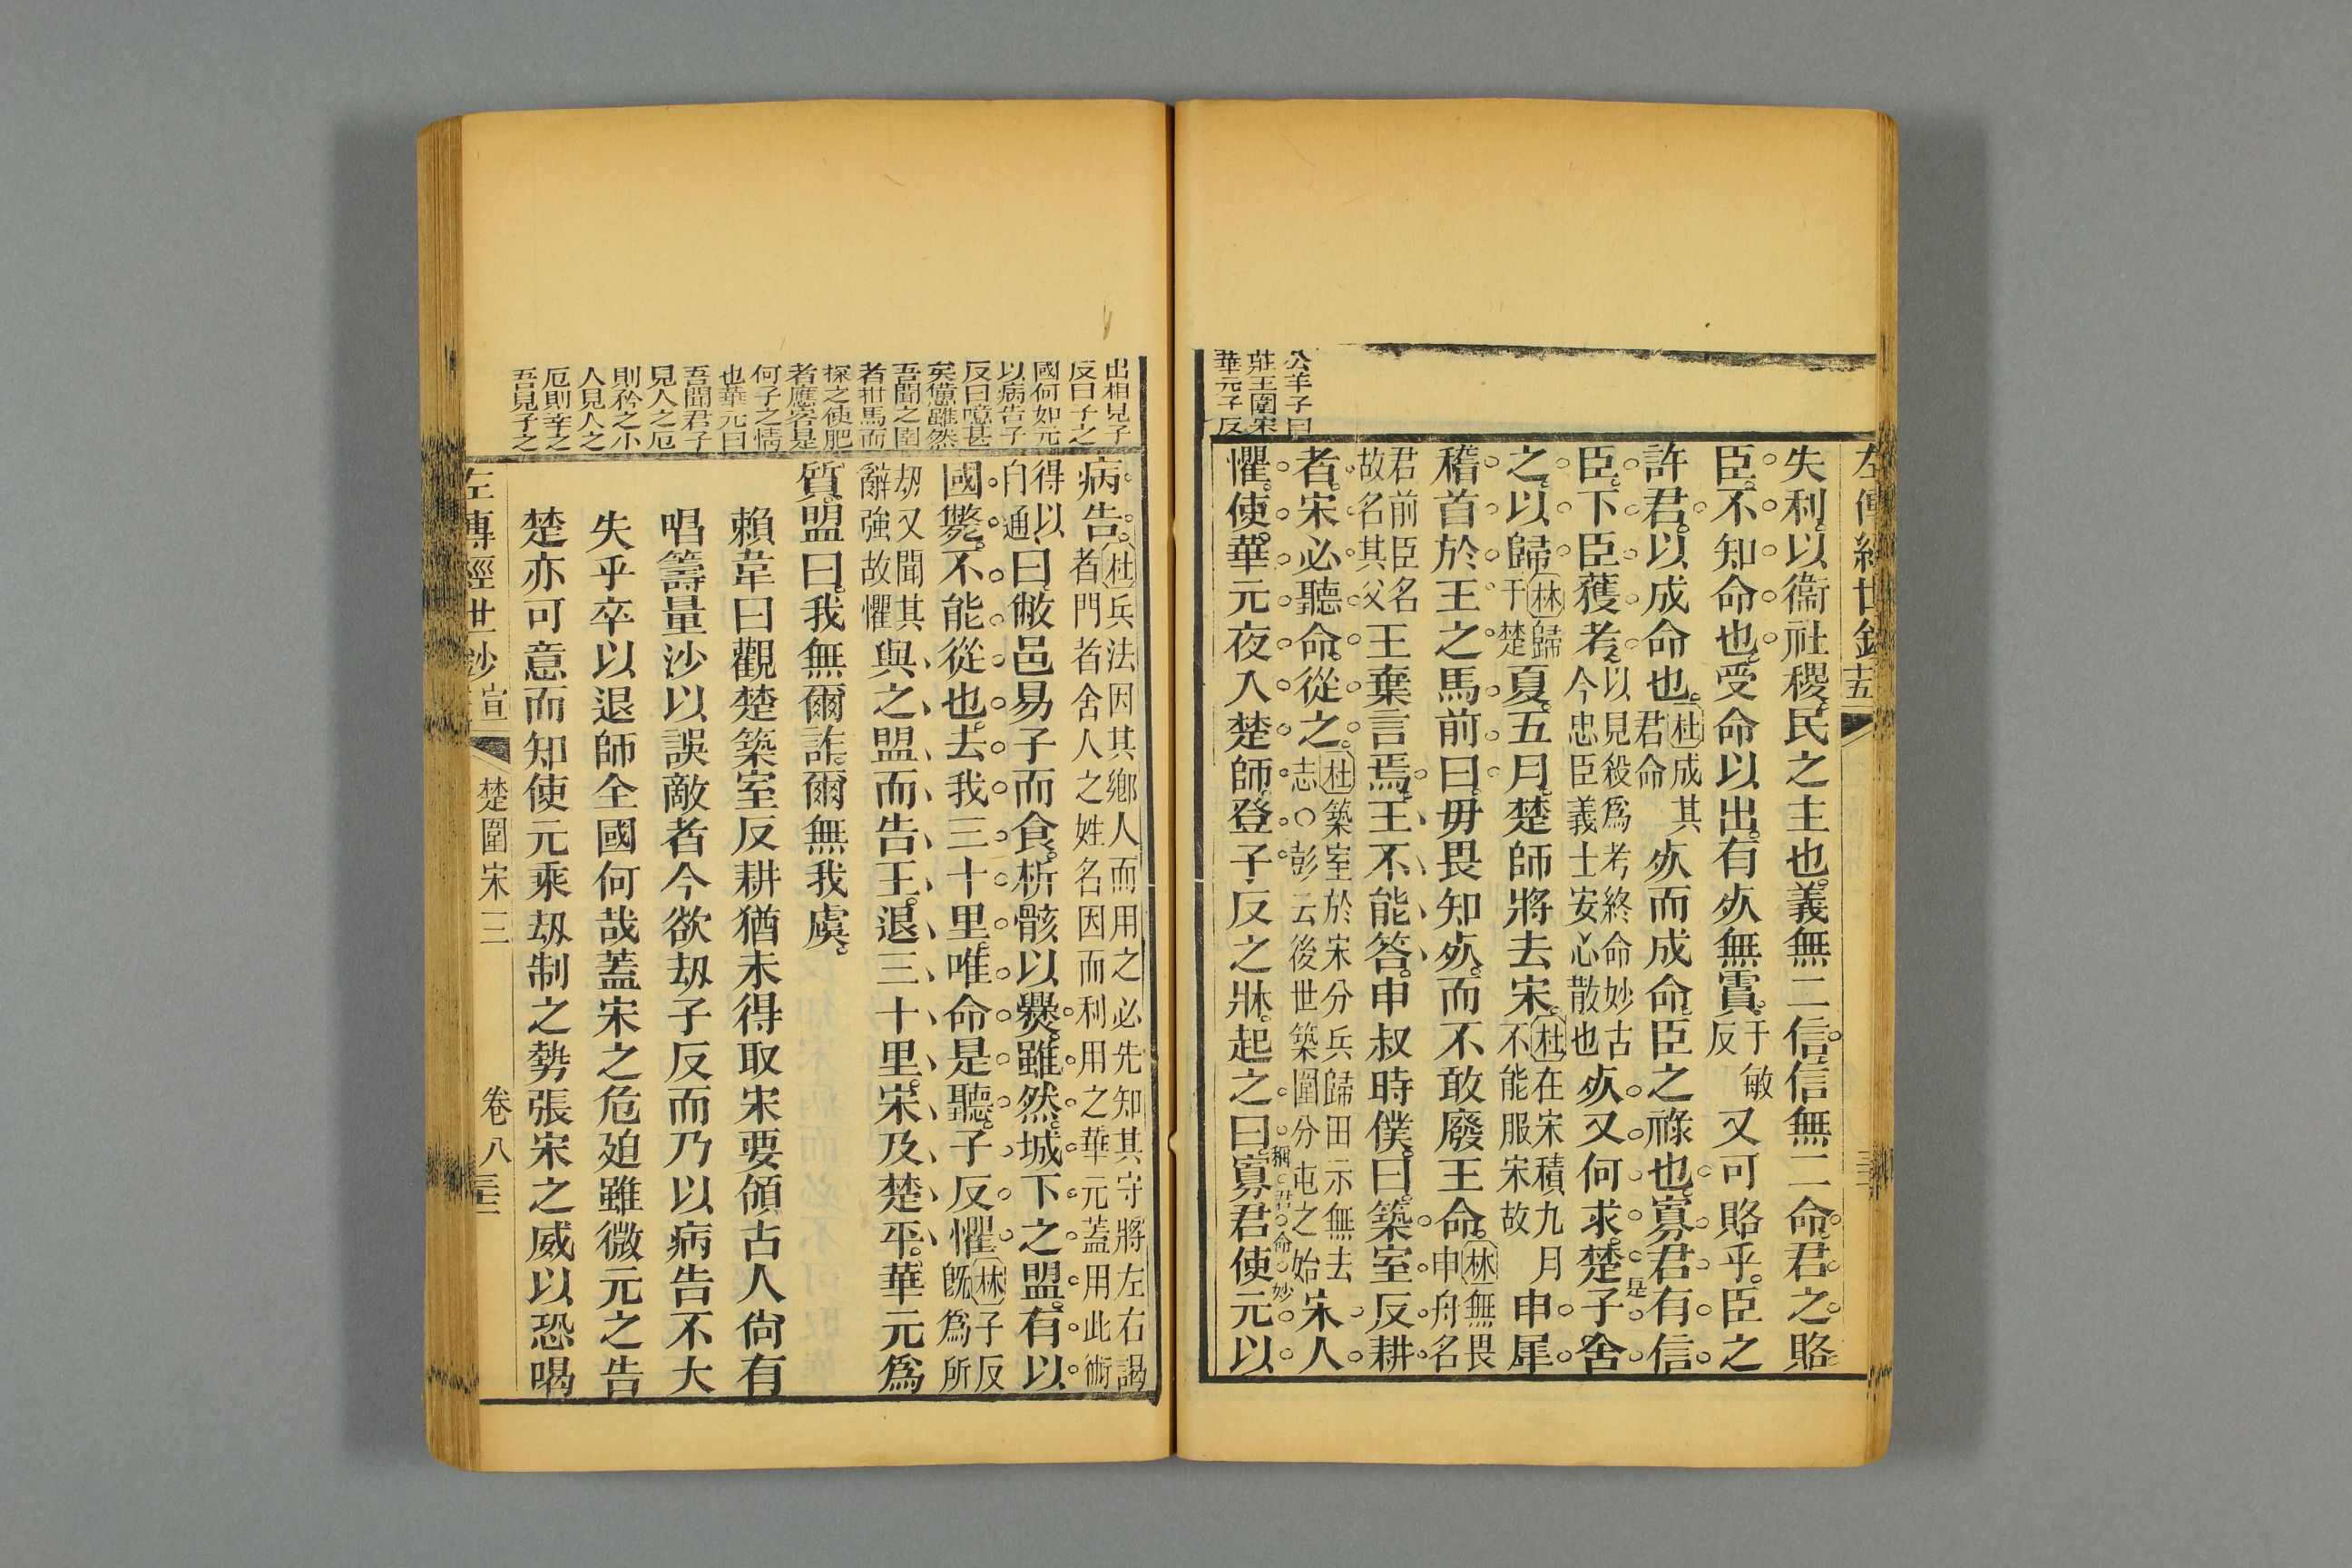 公羊子曰
莊王圍宋
華元子反
失利以衞社稷民之主也義無二信信無二命君之賂
臣不知命也受命以出有死無霣于敏反又可賂乎臣之
許君以成命也杜成其君命死而成命臣之祿也寡君有信
臣下臣獲考以見殺爲考終命妙古今忠臣義士安心散也死又何求楚子舍
是
之以歸林歸于楚夏五月楚師將去宋杜在宋積九月不能服宋故申犀
稽首於王之馬前曰毋畏知死而不敢廢王命林無畏申舟名
君前臣名故名其父王棄言焉王不能答申叔時僕曰築室反耕
者宋必聽命從之杜築室於宋分兵歸田示無去志○彭云後世築圍分屯之始宋人
懼使華元夜入楚師登子反之牀起之曰寡君使元以
稱君命妙
出相見子
反曰子之
國何如元
以病告子
反曰噫甚
矣憊雖然
吾聞之圍
者柑馬而
秣之使肥
者應客是
何子之情
也華元曰
吾聞君子
見人之厄
則矜之小
人見人之
厄則幸之
吾見子之
病告杜兵法因其鄉人而用之必先知其守將左右謁者門者舍人之姓名因而利用之華元蓋用此術
得以自通曰敝邑易子而食析骸以爨雖然城下之盟有以
國斃不能從也去我三十里唯命是聽子反懼林子反旣爲所
刼又聞其辭強故懼與之盟而告王退三十里宋及楚平華元爲
質盟曰我無爾詐爾無我虞
賴韋曰觀楚築室反耕猶未得取宋要領古人尙有
唱籌量沙以誤敵者今欲刼子反而乃以病告不大
失乎卒以退師全國何哉蓋宋之危廹雖微元之告
楚亦可意而知使元乘刼制之勢張宋之威以恐喝
左傳經世鈔 宣 楚圍宋三 卷八